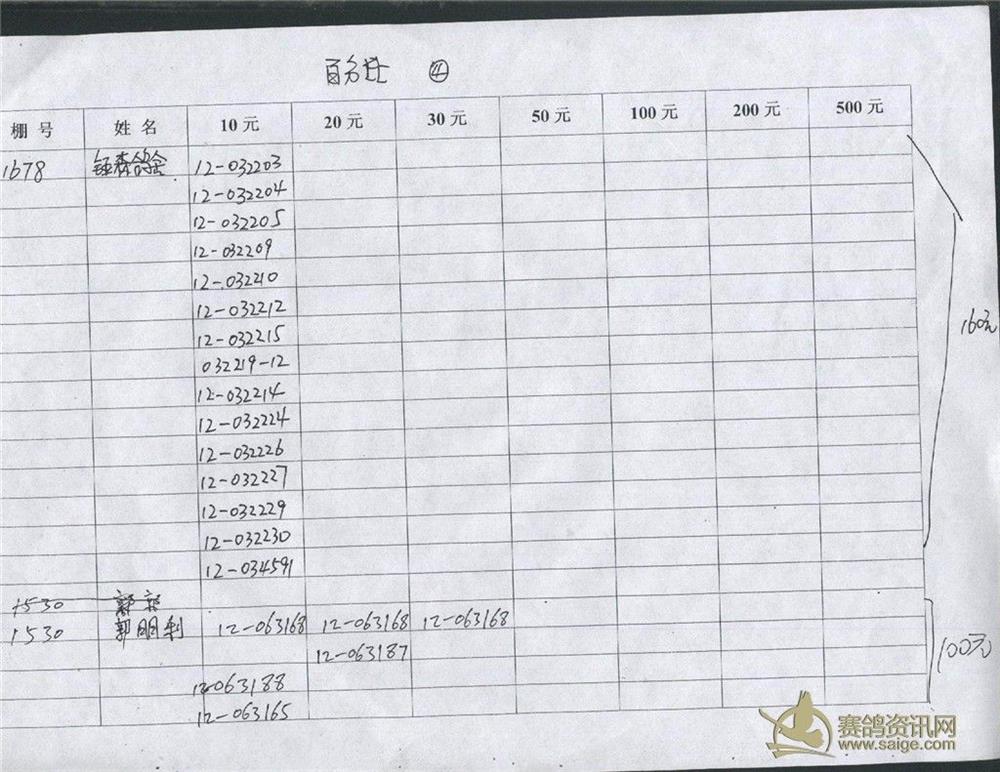 百分址 ④
棚号 姓名 10元 20元 30元 50元 100元 200元 500元
1678 钲森鸽舍 12-032203
12-032204
12-032205
12-032209
12-032210
12-032212
12-032215
032219-12
12-032214
12-032224
12-032226
12-032227
12-032229
12-032230
12-034591
160元
1530
1530 郭明利 12-063168 12-063168 12-063168
12-063187
12-063188
12-063165
100元
赛鸽资讯网
www.saige.com